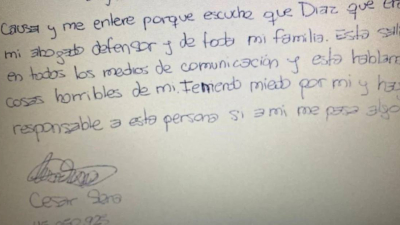 Causa y me entere porque escuche que Diaz que er
mi abogado defensor y de toda mi familia. Esta sali
en todos los medios de comunicación y esta hablan
cosas horribles de mi. Temendo miedo por mi y ha
responsable a esta persona si a mi me pasa algo
Cesar Sena